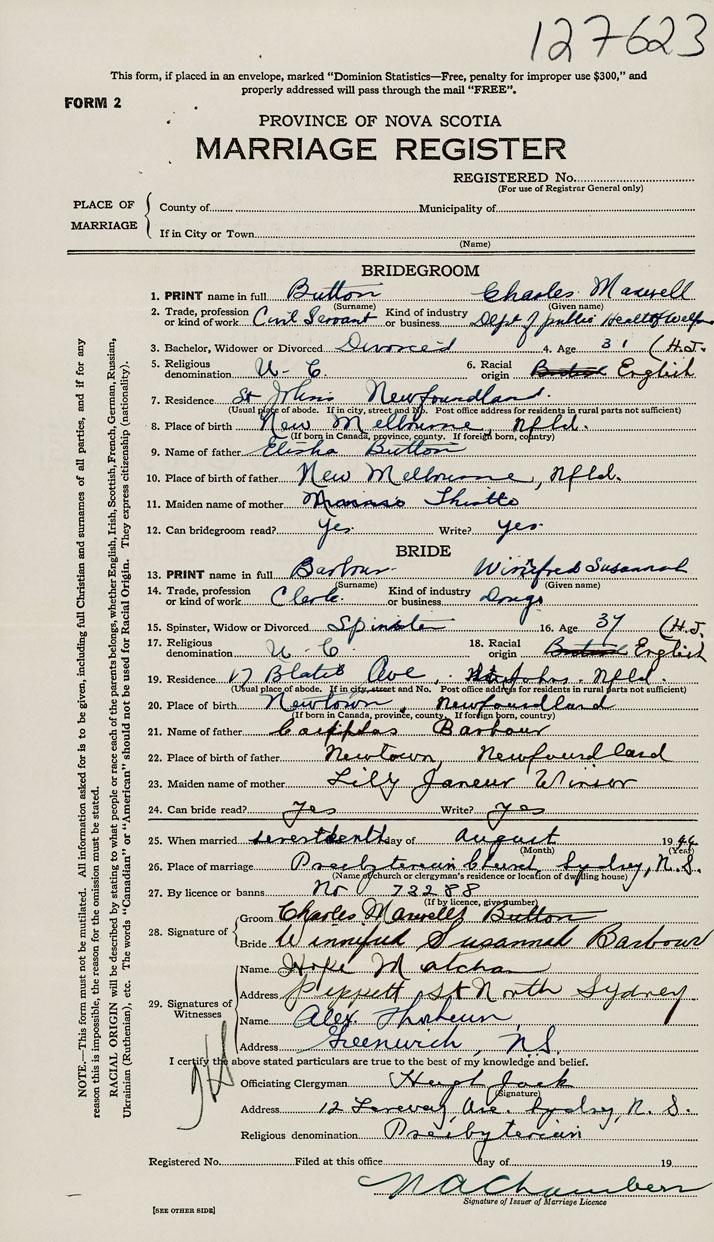 127623
This form, if placed in an envelope, marked "Dominion Statistics—Free, penalty for improper use $300," and
properly addressed will pass through the mail "FREE".
FORM 2
PROVINCE OF NOVA SCOTIA
MARRIAGE REGISTER
REGISTERED No.
(For use of Registrar General only)
PLACE OF MARRIAGE
County of Municipality of
If in City or Town
(Name)
BRIDEGROOM
1. PRINT name in full Button Charles Maxwell
(Surname) (Given name)
2. Trade, profession or kind of work Civil Servant Kind of industry or business Dept of public Health & Welfare
3. Bachelor, Widower or Divorced Divorced 4. Age 31 (H.J.
5. Religious denomination U. C. 6. Racial origin British English
7. Residence St Johns Newfoundland.
(Usual place of abode. If in city, street and No. Post office address for residents in rural parts not sufficient)
8. Place of birth New Melbourne, Nfld.
(If born in Canada, province, county. If foreign born, country)
9. Name of father Elisha Button
10. Place of birth of father New Melbourne, Nfld.
11. Maiden name of mother
12. Can bridegroom read? Yes Write? Yes
BRIDE
13. PRINT name in full Barbour Winnifred Susannah
(Surname) (Given name)
14. Trade, profession or kind of work Clerk. Kind of industry or business Drugs
15. Spinster, Widow or Divorced Spinster 16. Age 37 (H.J.
17. Religious denomination U. C. 18. Racial origin British English
19. Residence 17 Ave, St Johns. Nfld.
(Usual place of abode. If in city, street and No. Post office address for residents in rural parts not sufficient)
20. Place of birth Newtown, Newfoundland
(If born in Canada, province, county. If foreign born, country)
21. Name of father Barbour
22. Place of birth of father Newtown, Newfoundland
23. Maiden name of mother Lily Winsor
24. Can bride read? Yes Write? Yes
25. When married seventeenth day of August 1946
(Month) (Year)
26. Place of marriage Presbyterian Church Sydney, N.S.
(Name of church or clergyman's residence or location of dwelling house)
27. By licence or banns No 73288
(If by licence, give number)
28. Signature of
Groom Charles Maxwell Button
Bride Winnifred Susannah Barbour
29. Signatures of Witnesses
Name Hope
Address St North Sydney.
Name Alex.
Address Greenwich, N.S.
I certify the above stated particulars are true to the best of my knowledge and belief.
Officiating Clergyman Hugh Jack
(Signature)
Address 12 Ave. Sydney, N. S.
Religious denomination Presbyterian
Registered No. Filed at this office day of 19
N A Chambers
Signature of Issuer of Marriage Licence
[SEE OTHER SIDE]
NOTE.—This form must not be mutilated. All information asked for is to be given, including full Christian and surnames of all parties, and if for any
reason this is impossible, the reason for the omission must be stated.
RACIAL ORIGIN will be described by stating to what people or race each of the parents belongs, whether English, Irish, Scottish, French, German, Russian,
Ukrainian (Ruthenian), etc. The words "Canadian" or "American" should not be used for Racial Origin. They express citizenship (nationality).